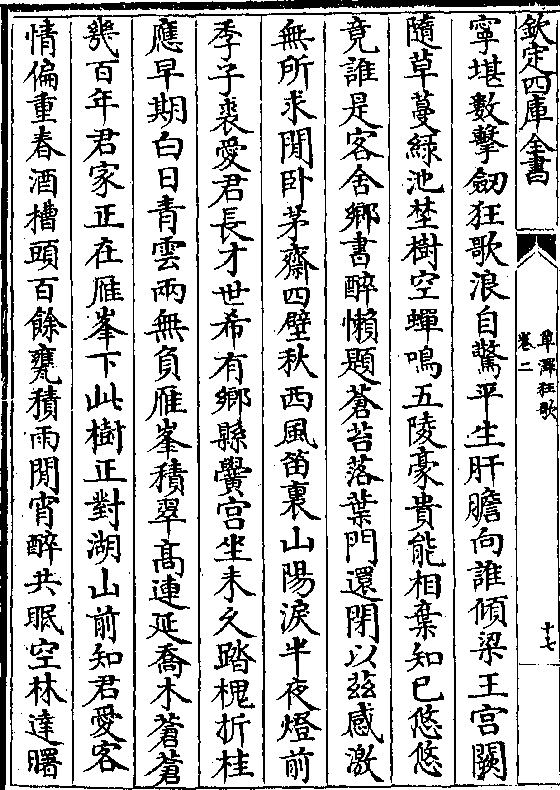 欽定四庫全書
臯軒狂歌
卷二
十七
寧堪數擊劒狂歌浪自驚平生肝膽向誰傾梁王宫闕
隨草蔓綠池埜樹空蟬鳴五陵豪貴能相棄知已悠悠
竟誰是客舍鄉書醉懶題蒼苔落葉門還閉以兹感激
無所求閒卧茅齋四壁秋西風笛裏山陽淚半夜燈前
季子裘愛君長才世希有鄉縣黌宫坐未久踏槐折桂
應早期白日青雲兩無負雁峯積翠髙連延喬木蒼蒼
幾百年君家正在雁峯下此樹正對湖山前知君愛客
情偏重春酒槽頭百餘甕積雨閒宵醉共眠空林達曙